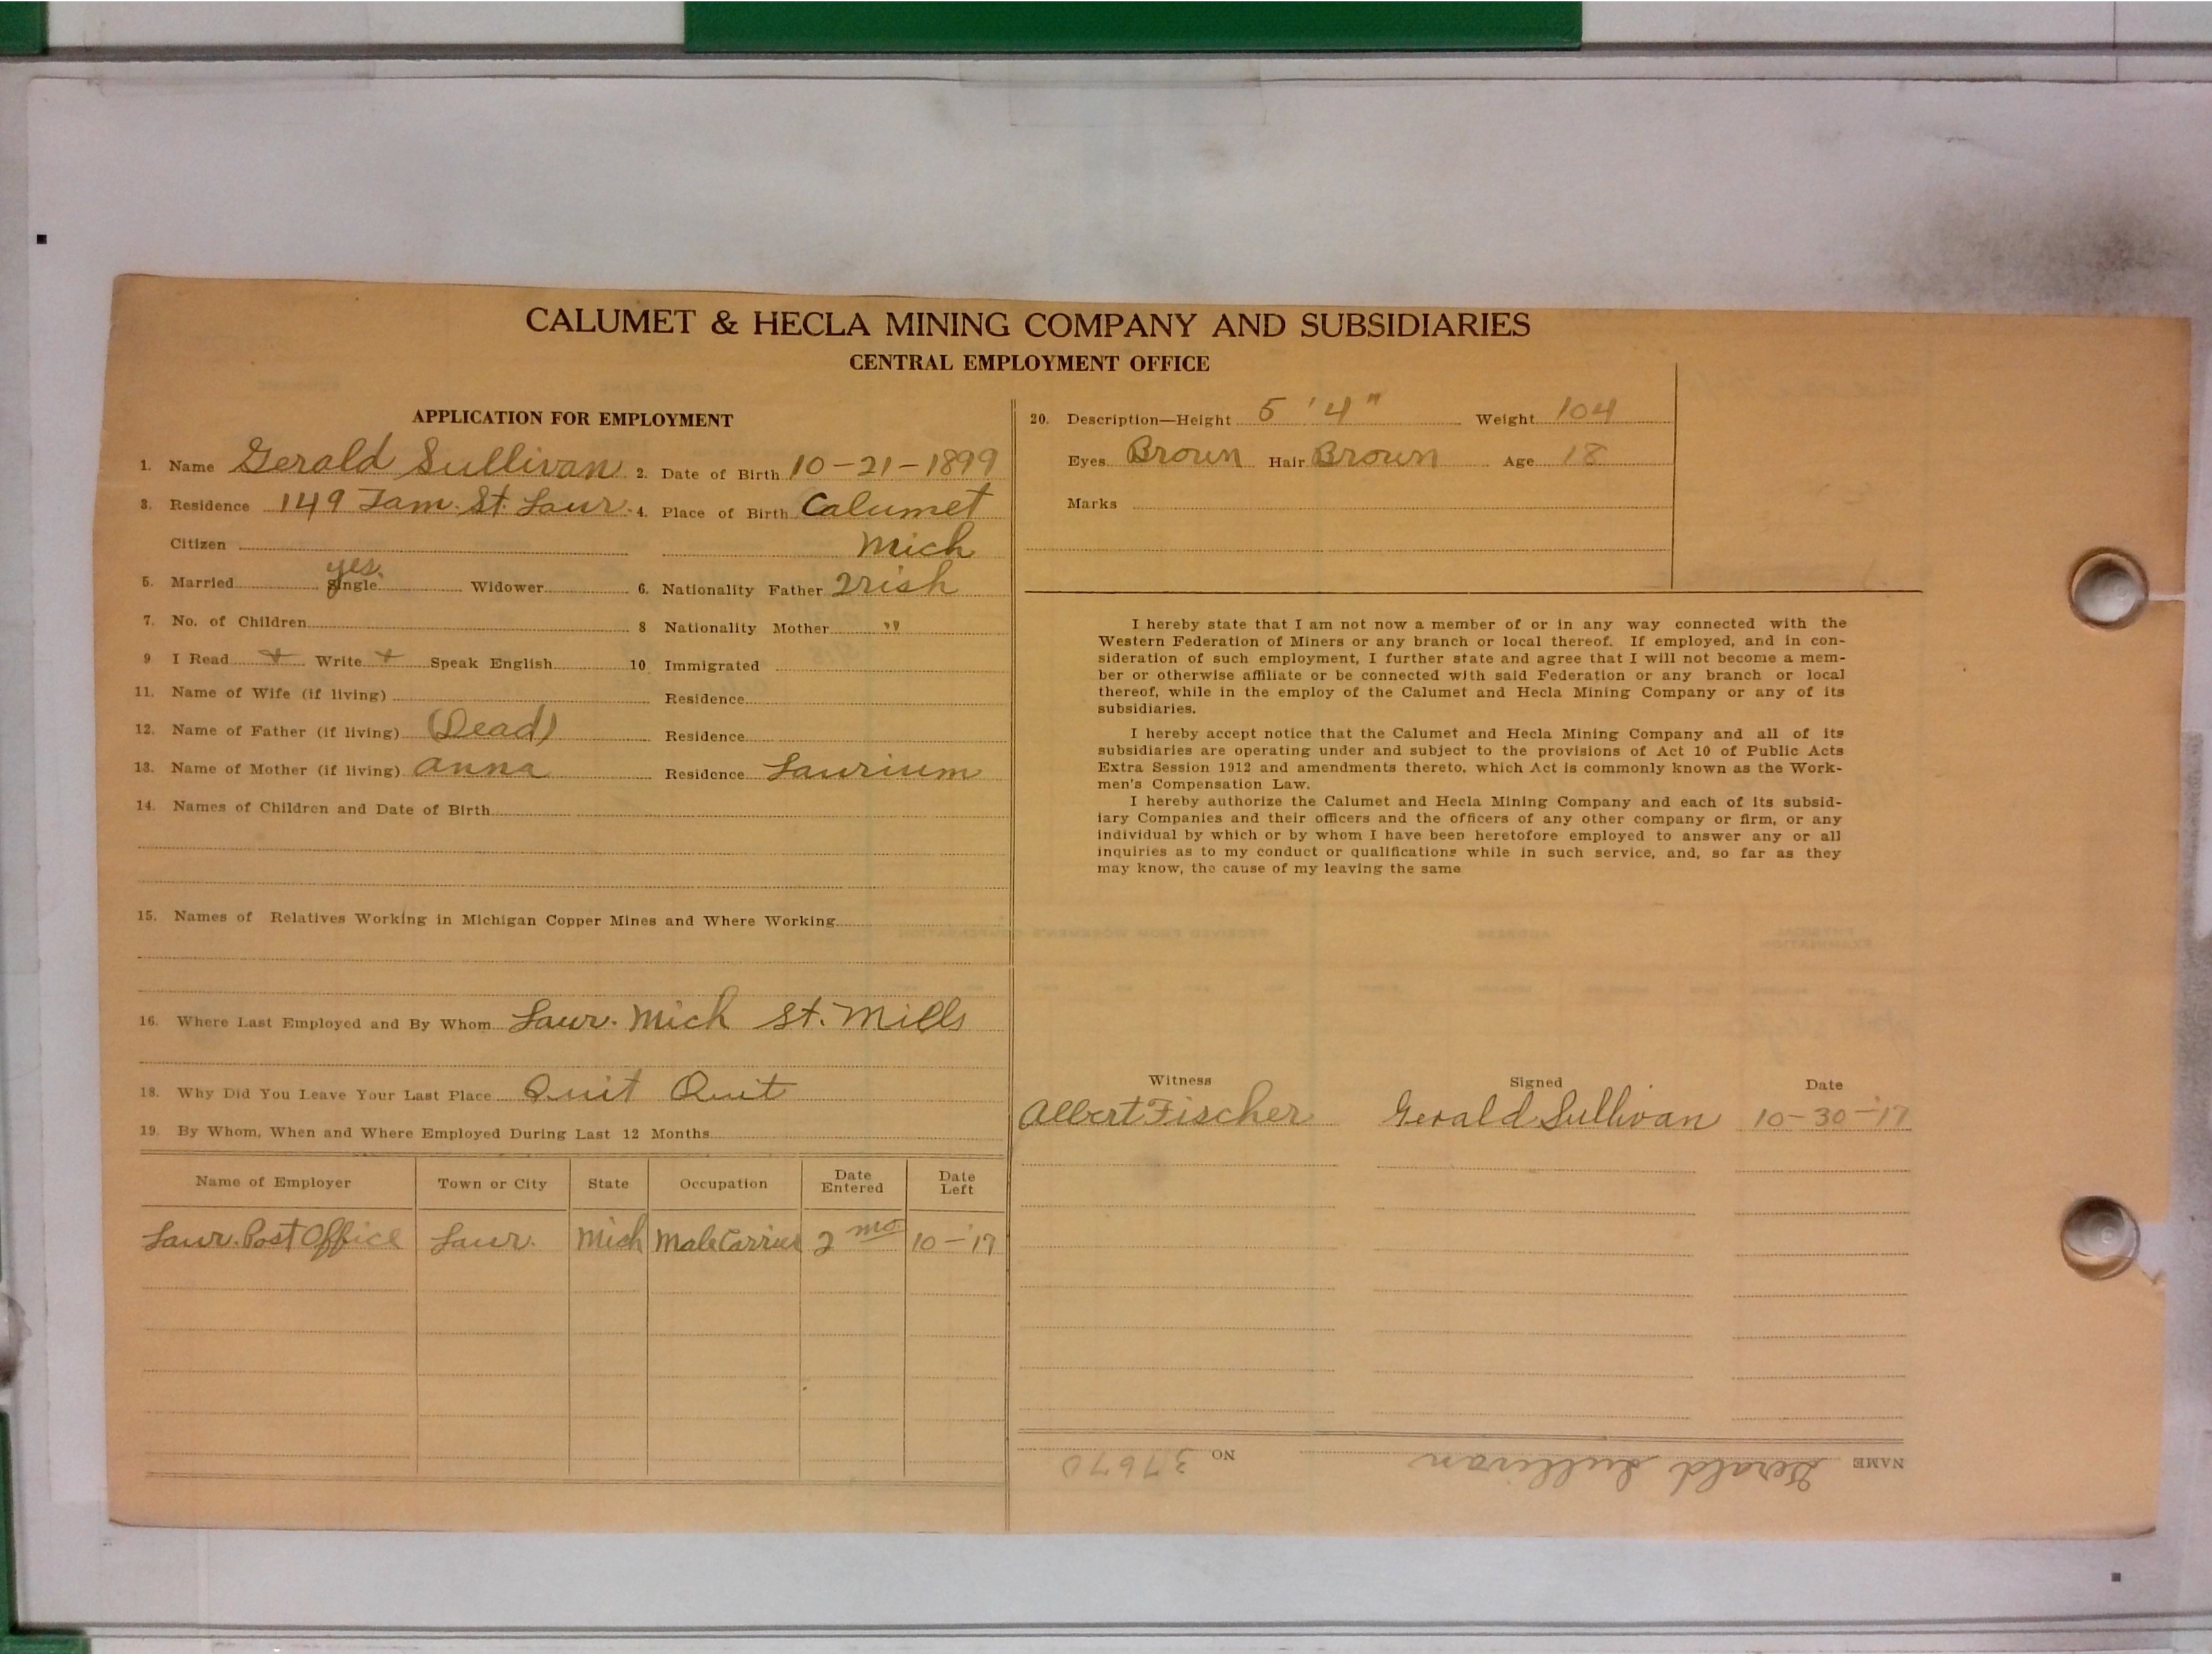 CALUMET & HECLA MINING COMPANY AND SUBSIDIARIES
CENTRAL EMPLOYMENT OFFICE
APPLICATION FOR EMPLOYMENT
1. Name Gerald Sullivan 2. Date of Birth 10-21-1899
3. Residence 149 Tam. St. Laur. 4. Place of Birth Calumet
Citizen Mich
yes
5. Married Single Widower 6. Nationality Father Irish
7. No. of Children 8 Nationality Mother "
9 I Read + Write + Speak English 10 Immigrated
11. Name of Wife (if living) Residence
12. Name of Father (if living) (Dead) Residence
13. Name of Mother (if living) Anna Residence Laurium
14. Names of Children and Date of Birth
15. Names of Relatives Working in Michigan Copper Mines and Where Working
16. Where Last Employed and By Whom Laur. Mich St. Mills
18. Why Did You Leave Your Last Place Quit Quit
19. By Whom, When and Where Employed During Last 12 Months
Name of Employer Town or City State Occupation Date Entered Date Left
Laur. Post Office Laur. Mich Male Carrier 2 mo. 10-'17
20. Description—Height 5'4" Weight 104
Eyes Brown Hair Brown Age 18
Marks
I hereby state that I am not now a member of or in any way connected with the
Western Federation of Miners or any branch or local thereof. If employed, and in con-
sideration of such employment, I further state and agree that I will not become a mem-
ber or otherwise affiliate or be connected with said Federation or any branch or local
thereof, while in the employ of the Calumet and Hecla Mining Company or any of its
subsidiaries.
I hereby accept notice that the Calumet and Hecla Mining Company and all of its
subsidiaries are operating under and subject to the provisions of Act 10 of Public Acts
Extra Session 1912 and amendments thereto, which Act is commonly known as the Work-
men's Compensation Law.
I hereby authorize the Calumet and Hecla Mining Company and each of its subsid-
iary Companies and their officers and the officers of any other company or firm, or any
individual by which or by whom I have been heretofore employed to answer any or all
inquiries as to my conduct or qualifications while in such service, and, so far as they
may know, the cause of my leaving the same
Witness Signed Date
Albert Fischer Gerald Sullivan 10-30-'17
NAME Gerald Sullivan NO 37670